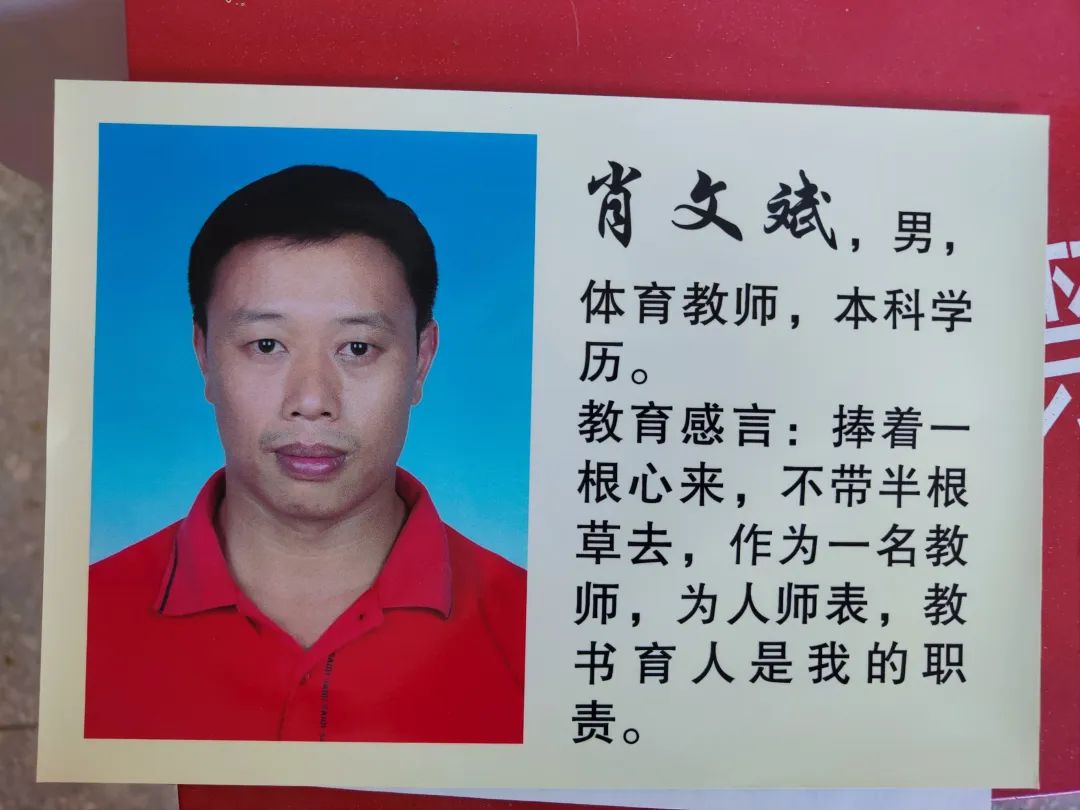 肖文斌，男，
体育教师，本科学
历。
教育感言：捧着一
根心来，不带半根
草去，作为一名教
师，为人师表，教
书育人是我的职
责。